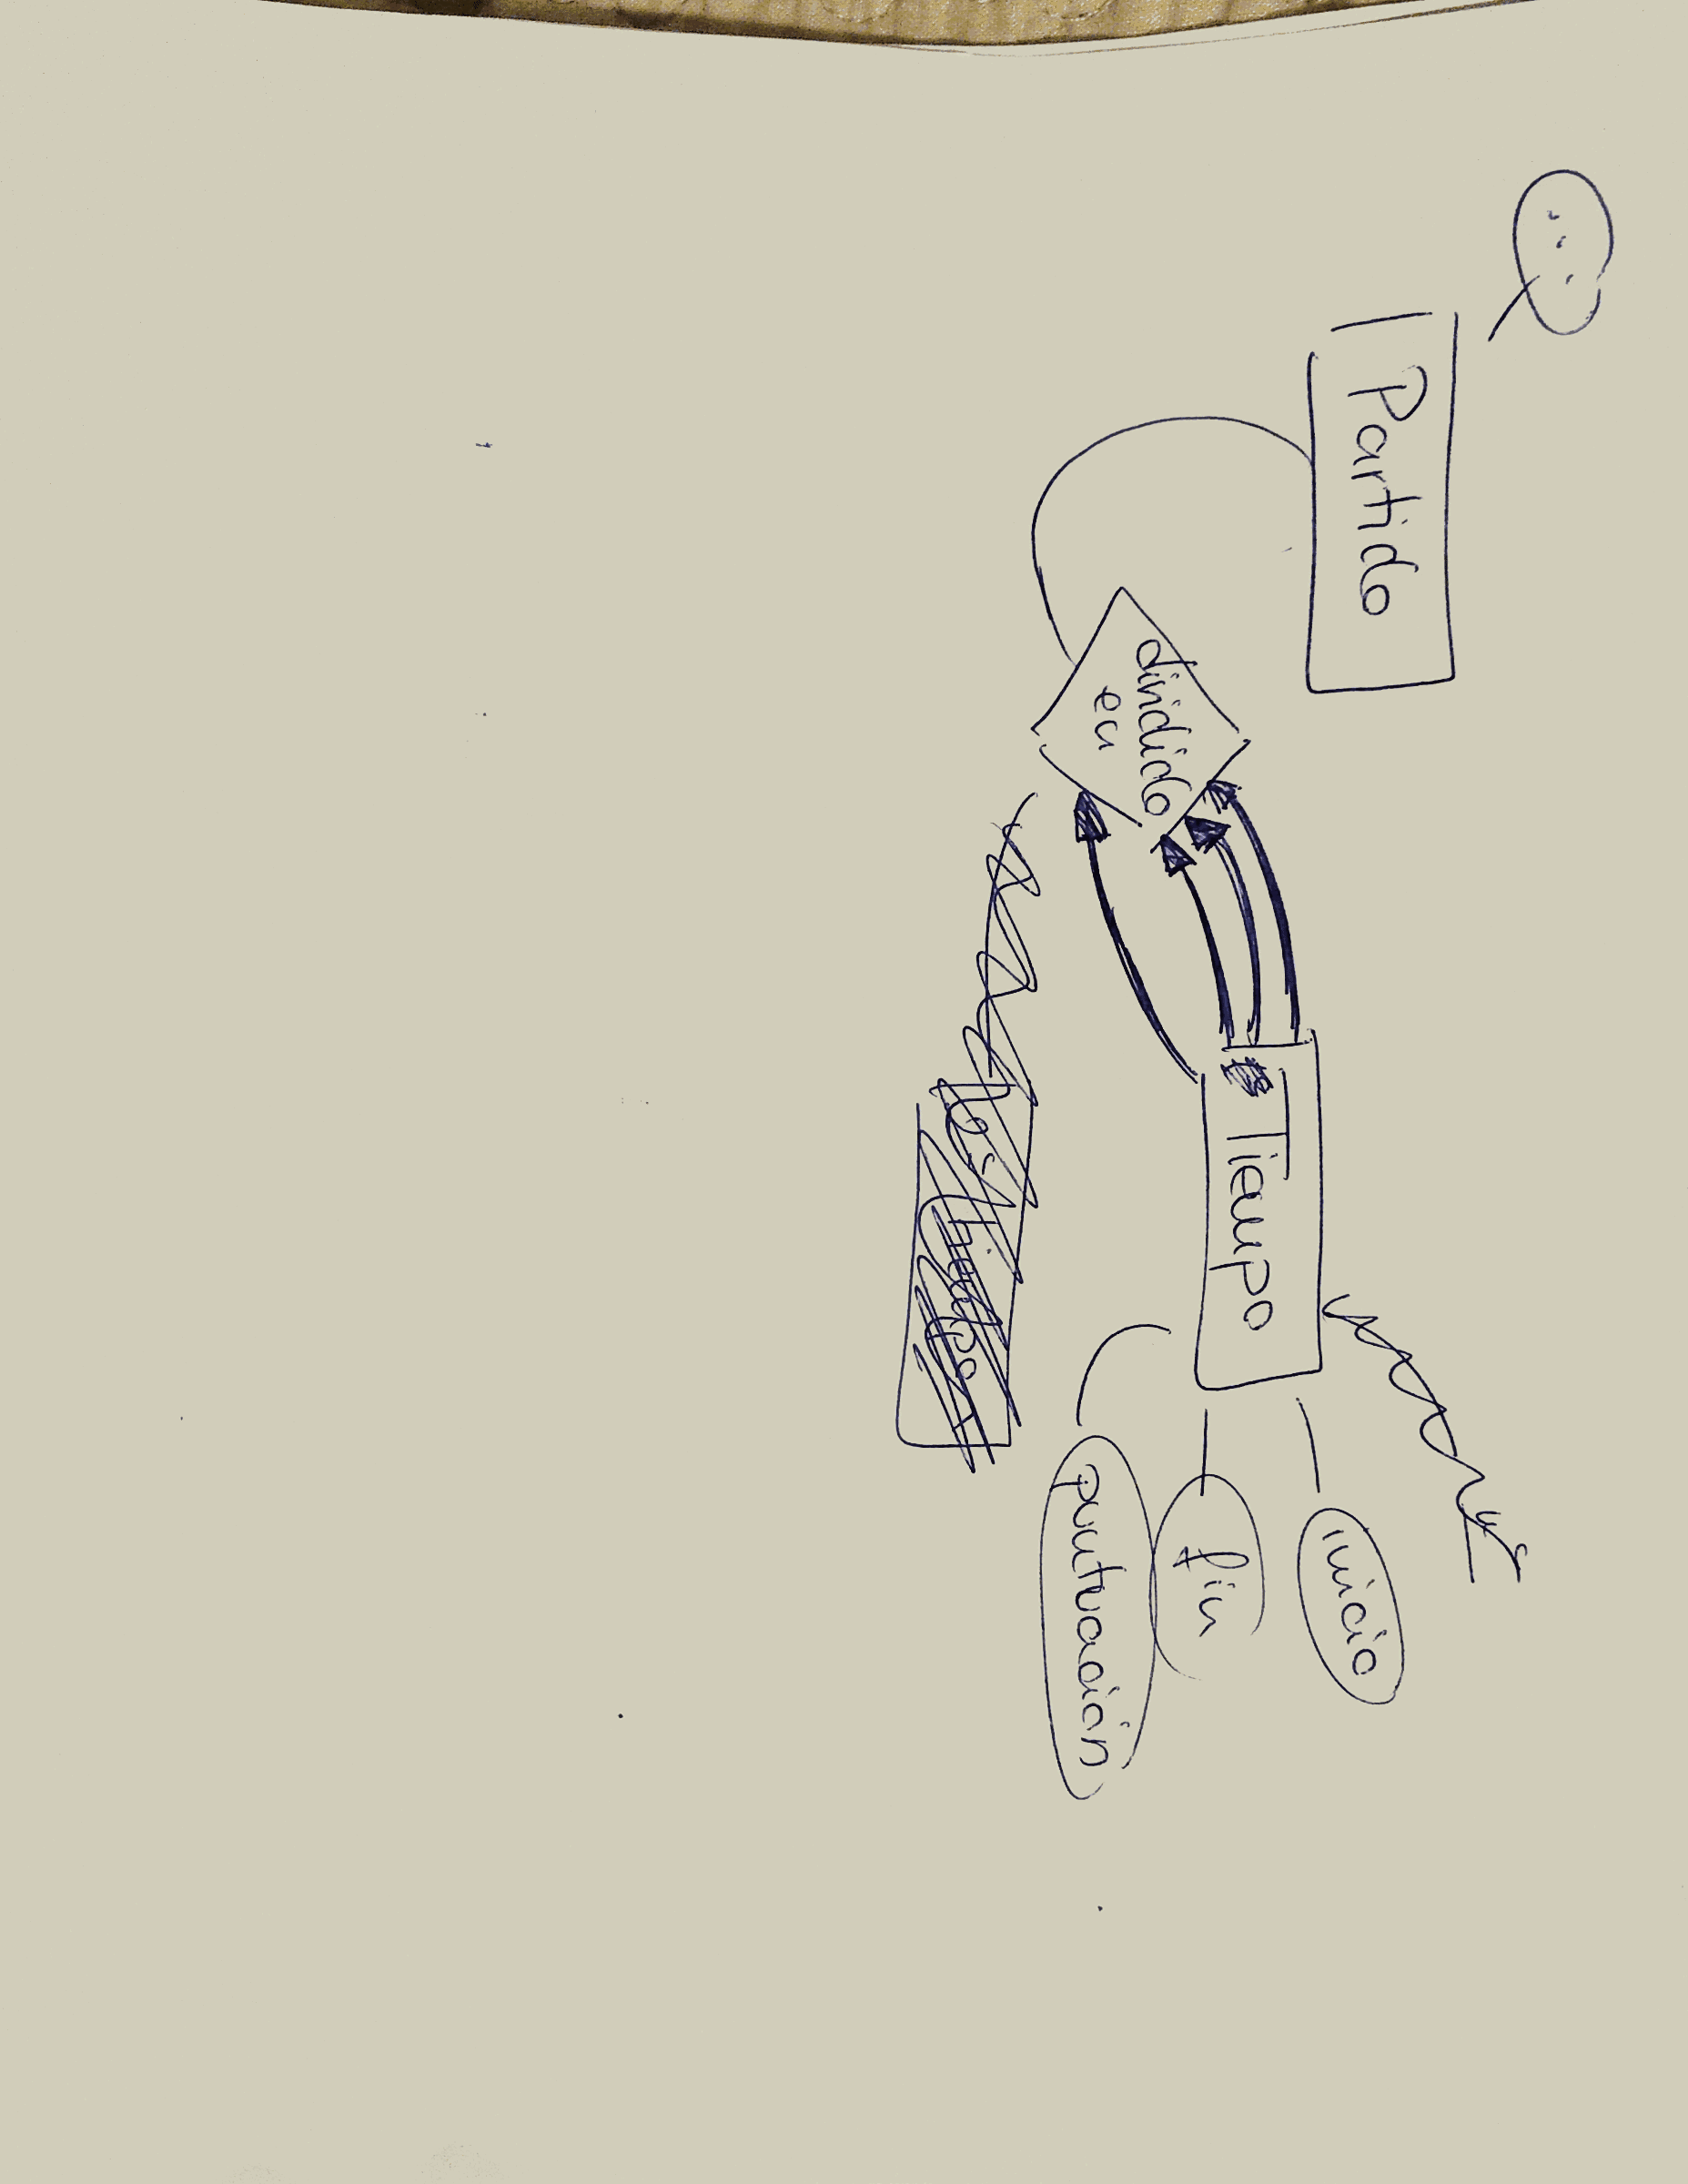 ...
Partido
dividido
en
Tiempo
inicio
fin
puntuación